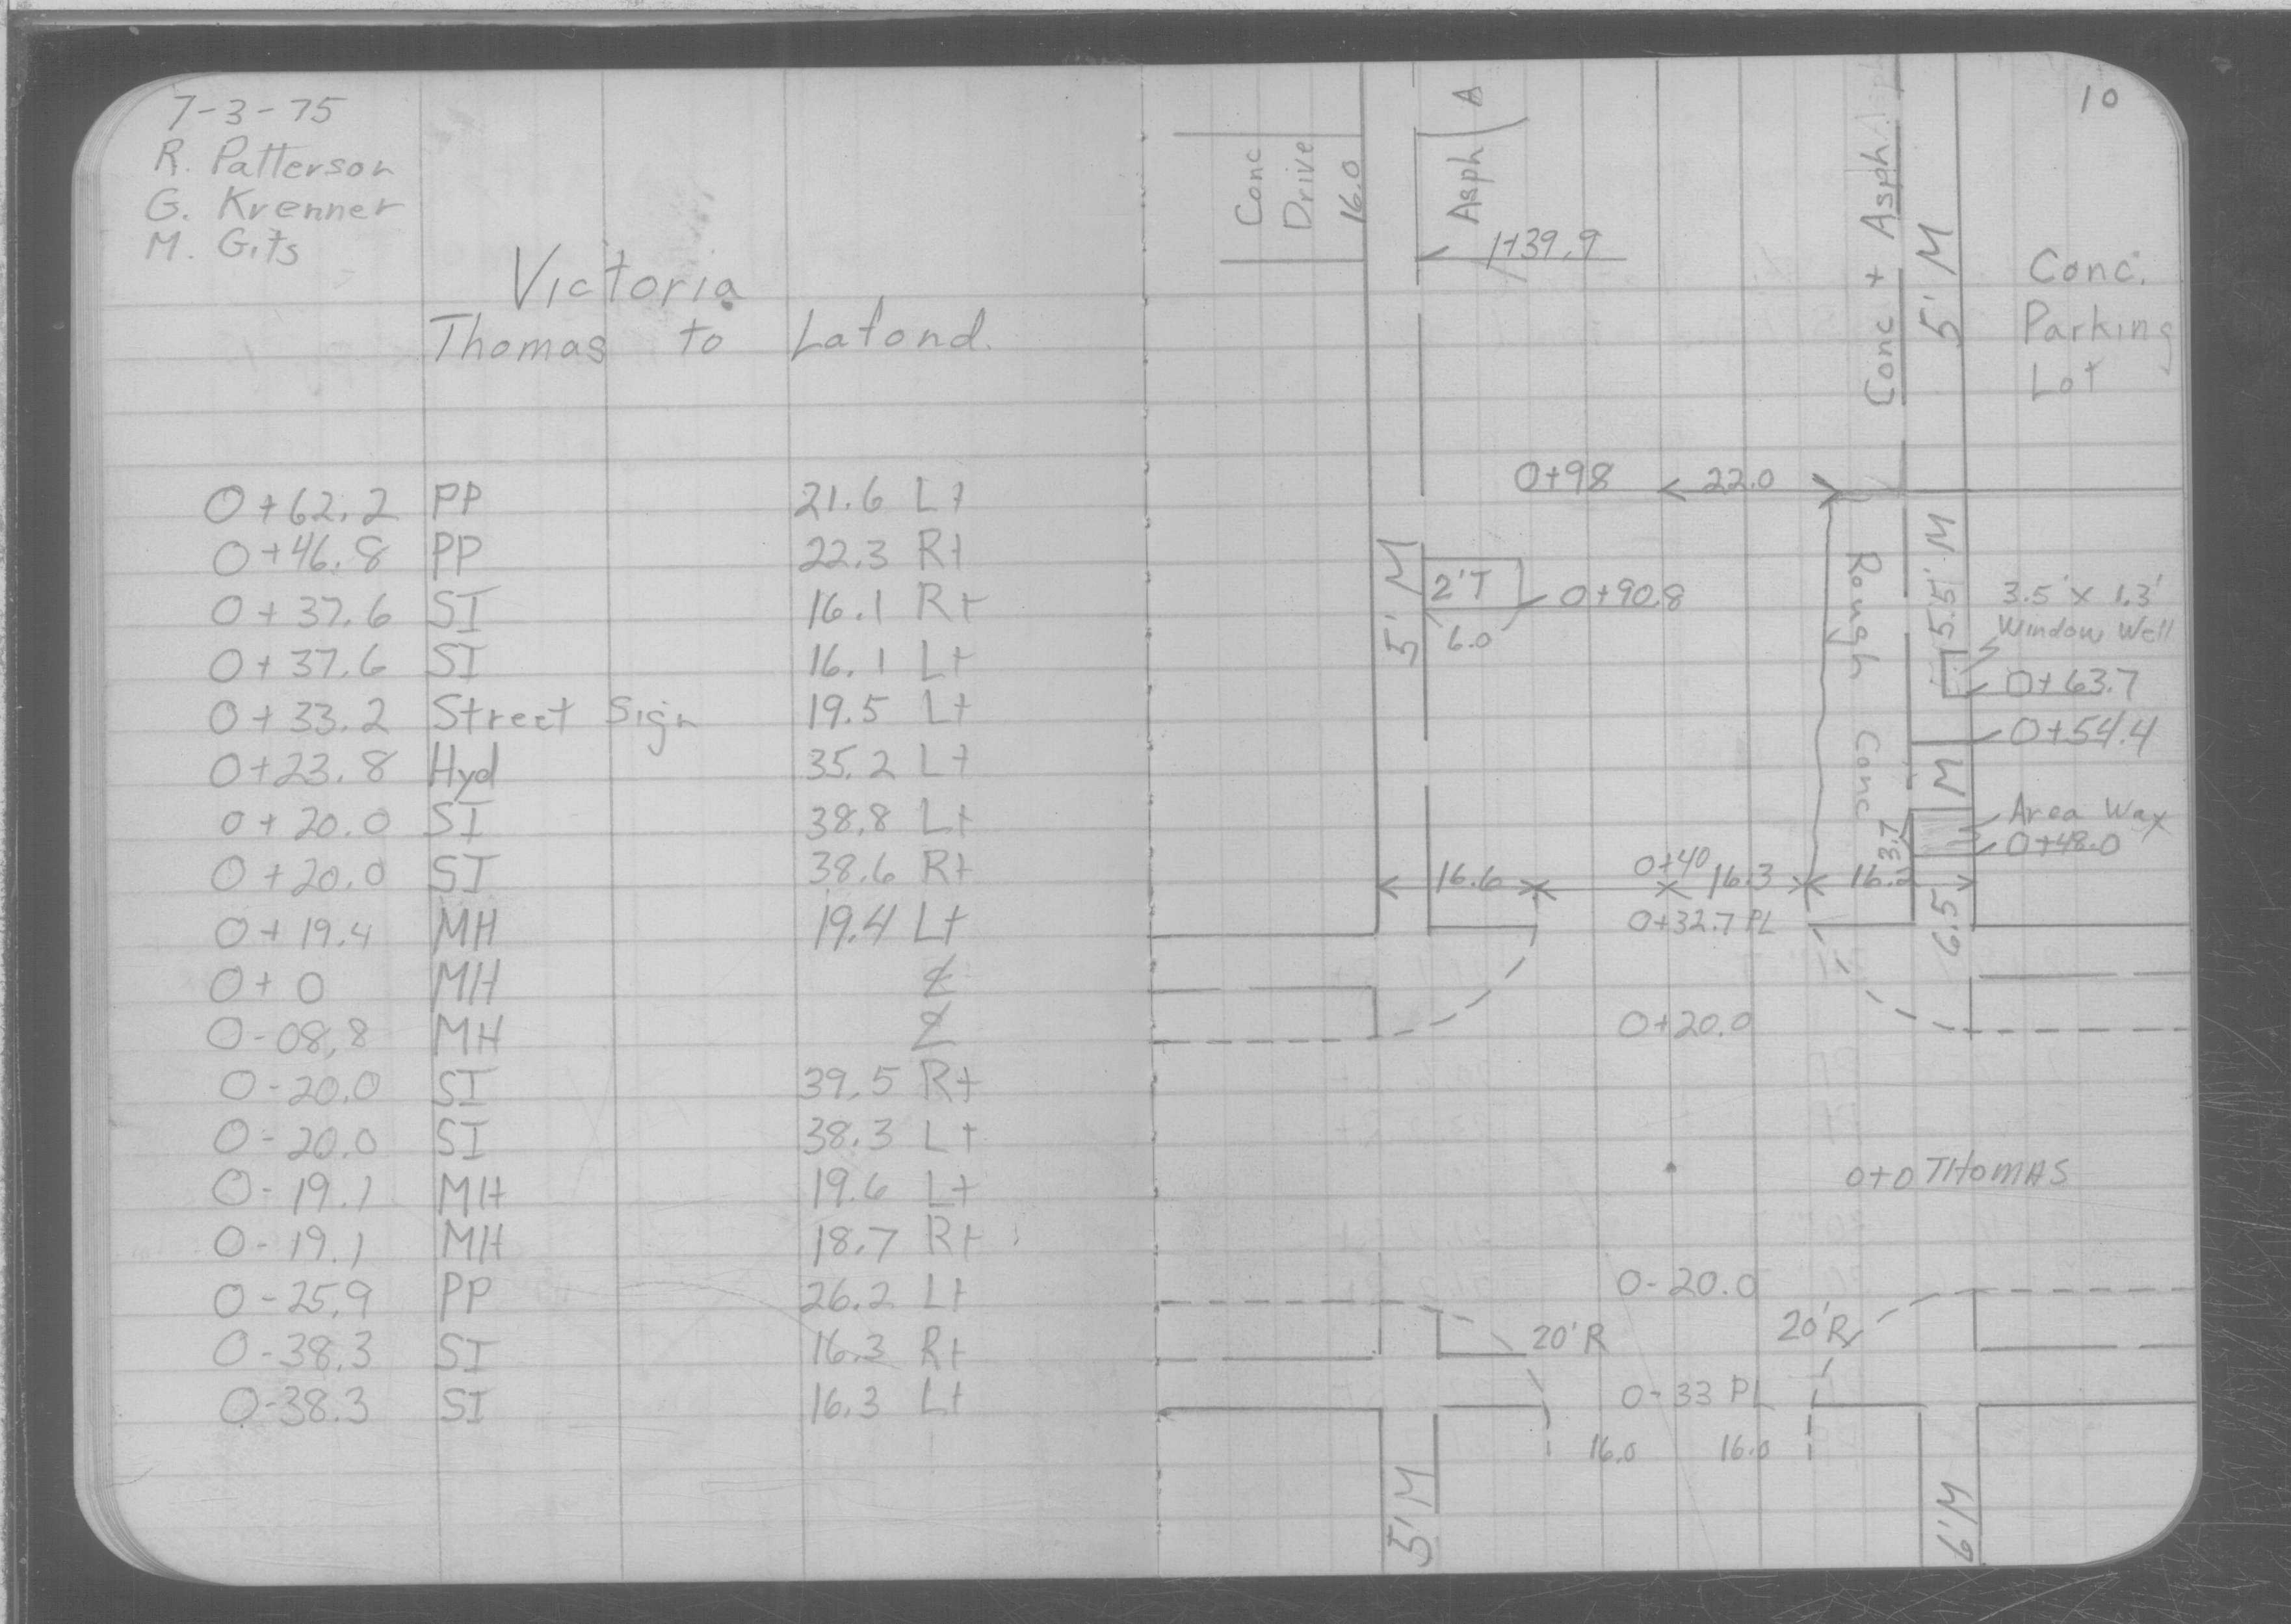 7-3-75
R. Patterson
G. Krenner
M. Gits
Victoria
Thomas to Lafond.
0+62.2 PP 21.6 Lt
0+46.8 PP 22.3 Rt
0+37.6 SI 16.1 Rt
0+37.6 SI 16.1 Lt
0+33.2 Street Sign 19.5 Lt
0+23.8 Hyd 35.2 Lt
0+20.0 SI 38.8 Lt
0+20.0 SI 38.6 Rt
0+19.4 MH 19.4 Lt
0+0 MH ℄
0-08.8 MH ℄
0-20.0 SI 39.5 Rt
0-20.0 SI 38.3 Lt
0-19.1 MH 19.6 Lt
0-19.1 MH 18.7 Rt
0-25.9 PP 26.2 Lt
0-38.3 SI 16.3 Rt
0-38.3 SI 16.3 Lt
10
Conc
Drive
16.0
Asph
A
1+39.9
Conc + Asph
5' M
Conc.
Parking
Lot
0+98 22.0
5' M
2'T
6.0
0+90.8
Rough Conc
5.5' M
3.5' x 1.3'
Window Well
0+63.7
0+54.4
M
Area Way
0+48.0
3.7
16.6
0+40
16.3
16.2
6.5
0+32.7 PL
0+20.0
0+0 THOMAS
0-20.0
20'R
20'R
0-33 PL
16.0 16.0
5' M
6' M